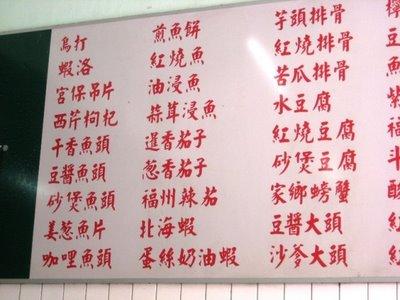 烏打
蝦洛
宮保吊片
西芹枸杞
干香魚頭
豆醬魚頭
砂煲魚頭
姜葱魚片
咖哩魚頭
煎魚餅
紅燒魚
油浸魚
蒜茸浸魚
暹香茄子
葱香茄子
福州辣茄
北海蝦
蛋絲奶油蝦
芋頭排骨
紅燒排骨
苦瓜排骨
水豆腐
紅燒豆腐
砂煲豆腐
家鄉螃蟹
豆醬大頭
沙爹大頭
豆
魚
紫
福
斗
酸
紅